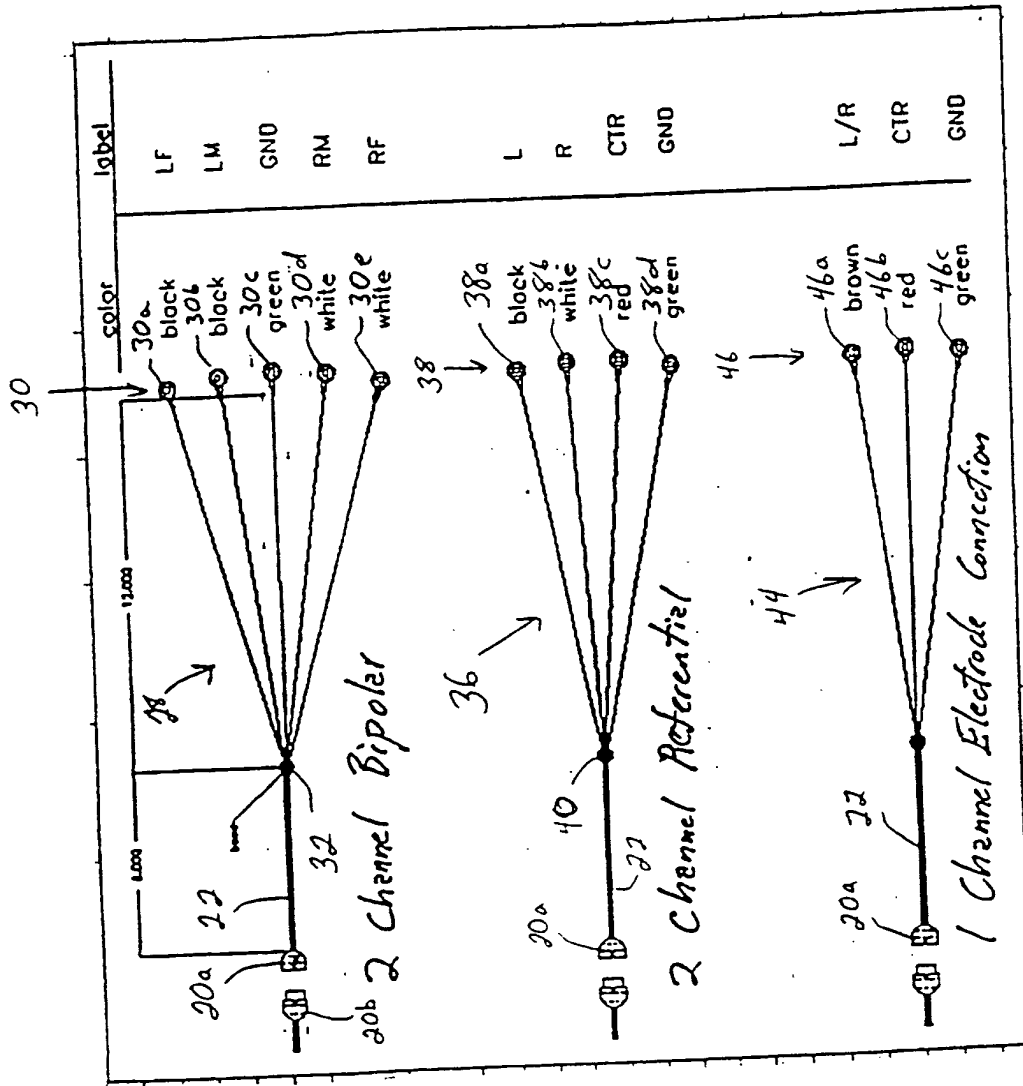 color
label
30
30a
black
LF
30b
black
LM
30c
green
GND
30d
white
RM
30e
white
RF
12.000
6.000
28
22
32
20a
20b
2 Channel Bipolar
38
38a
black
L
38b
white
R
38c
red
CTR
38d
green
GND
36
40
22
20a
2 Channel Referential
46
46a
brown
L/R
46b
red
CTR
46c
green
GND
44
22
20a
1 Channel Electrode Connection